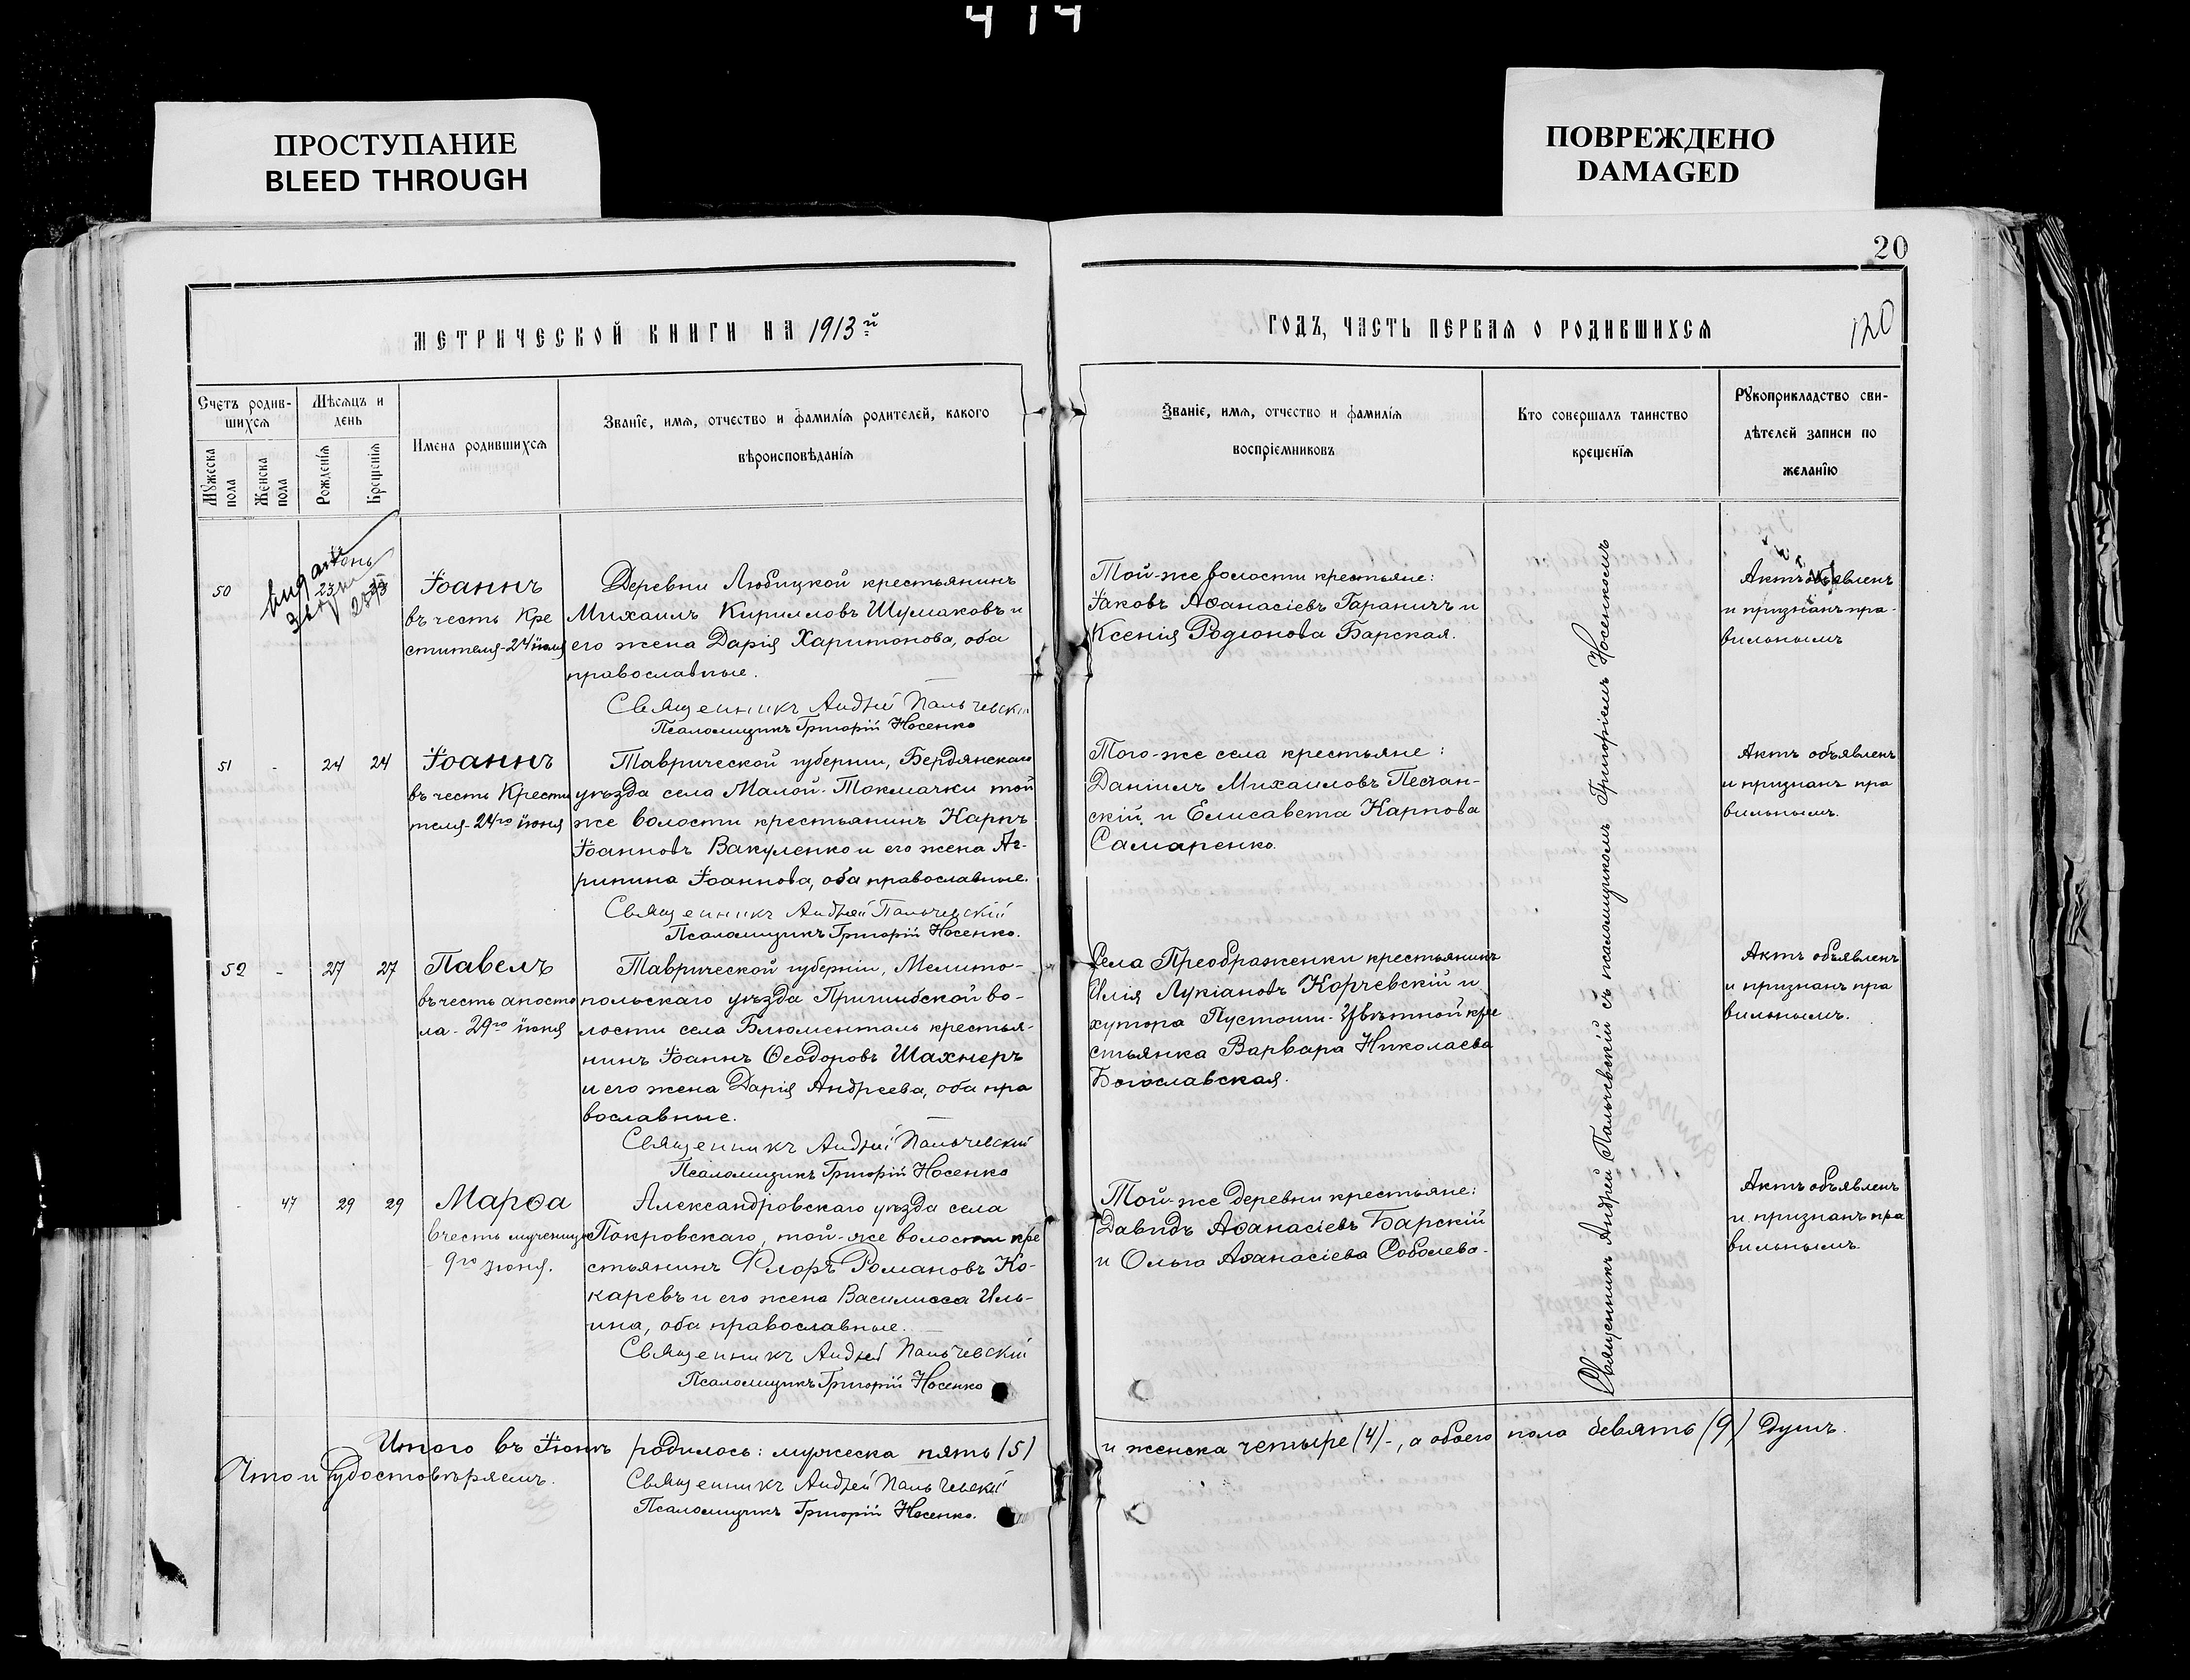 414
ПРОСТУПАНИЕ
BLEED THROUGH
ПОВРЕЖДЕНО
DAMAGED
20
120
МЕТРИЧЕСКОЙ КНИГИ НА 1913й
ГОДЪ, ЧАСТЬ ПЕРВАЯ О РОДИВШИХСЯ
Счетъ родив-
шихся
Мужеска пола
Женска пола
Мѣсяцъ и
день
Рожденія
Крещенія
Имена родившихся
Званіе, имя, отчество и фамилія родителей, какого
вѣроисповѣданія
Званіе, имя, отчество и фамилія
воспріемниковъ
Кто совершалъ таинство
крещенія
Рукоприкладство сви-
дѣтелей записи по
желанію
50
23
Іоаннъ
въ честь Кре
стителя-24 іюня
Деревни Любицкой крестьянинъ
Михаилъ Кирилловъ Шумаковъ и
его жена Дарія Харитонова, оба
православные.
Священникъ Андрей Пальчевскій
Псаломщикъ Григорій Носенко
Той-же волости крестьяне:
Іаковъ Аѳанасіевъ Гараничъ и
Ксенія Родіонова Барская.
Актъ объявленъ
и признанъ пра-
вильнымъ
51 - 24 24
Іоаннъ
въ честь Крести
теля-24го іюня
Таврической губерніи, Бердянскаго
уѣзда села Малой-Токмачки той
же волости крестьянинъ Карпъ
Іоанновъ Вакуленко и его жена Аг-
рипина Іоаннова, оба православные.
Священникъ Андрей Пальчевскій
Псаломщикъ Григорій Носенко.
Того-же села крестьяне:
Даніилъ Михаиловъ Песчан-
скій и Елисавета Карпова
Самаренко.
Актъ объявленъ
и признанъ пра
вильнымъ.
52 - 27 27
Павелъ
въ честь апосто
ла-29го іюня
Таврической губерніи, Мелито-
польскаго уѣзда Пришибской во-
лости села Блюменталь крестья-
нинъ Іоаннъ Ѳеодоровъ Шахнеръ
и его жена Дарія Андреева, оба пра
вославные.
Священникъ Андрей Пальчевскій
Псаломщикъ Григорій Носенко
Села Преображенки крестьянинъ
Илія Лукіановъ Корчевскій и
хутора Пустоши-Цвѣтной кре
стьянка Варвара Николаева
Богославская.
Актъ объявленъ
и признанъ пра
вильнымъ.
- 47 29 29
Марѳа
въ честь мученицы
9го іюня.
Александровскаго уѣзда села
Покровскаго, той-же волости кре
стьянинъ Флоръ Романовъ Ко-
каревъ и его жена Василисса Иль-
ина, оба православные.
Священникъ Андрей Пальчевскій
Псаломщикъ Григорій Носенко
Той-же деревни крестьяне:
Давидъ Аѳанасіевъ Барскій
и Ольга Аѳанасіева Соболева.
Актъ объявленъ
и признанъ пра
вильнымъ.
Священникъ Андрей Пальчевскій съ псаломщикомъ Григоріемъ Носенкомъ
Итого въ Іюнѣ родилось: мужеска пять (5) и женска четыре (4)-, а обоего пола девять (9) душъ.
Что и удостовѣряемъ.
Священникъ Андрей Пальчевскій
Псаломщикъ Григорій Носенко.